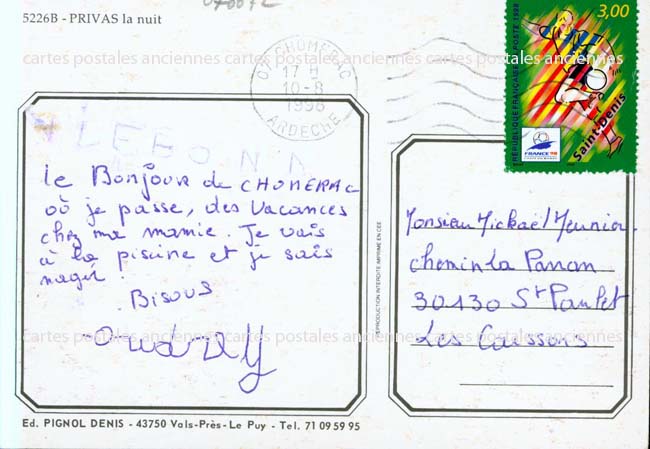 5226B - PRIVAS la nuit
07 CHOMERAC
17 H
10-8
1998
ARDECHE
3,00
REPUBLIQUE FRANÇAISE LA POSTE 1998
Saint-Denis
FRANCE 98
cartes postales anciennes cartes postales anciennes cartes postales anciennes
le Bonjour de CHOMERAC
où je passe, des vacances
chez ma mamie. Je vais
à la piscine et je sais
nager.
Bisous
Audrey
REPRODUCTION INTERDITE IMPRIMÉ EN CEE
Monsieur Mickaël Meunier
chemin La Panan
30130 St Paulet
Les Caissons
cartes postales anciennes cartes postales anciennes cartes postales anciennes
Ed. PIGNOL DENIS - 43750 Vals-Près-Le Puy - Tel. 71 09 59 95